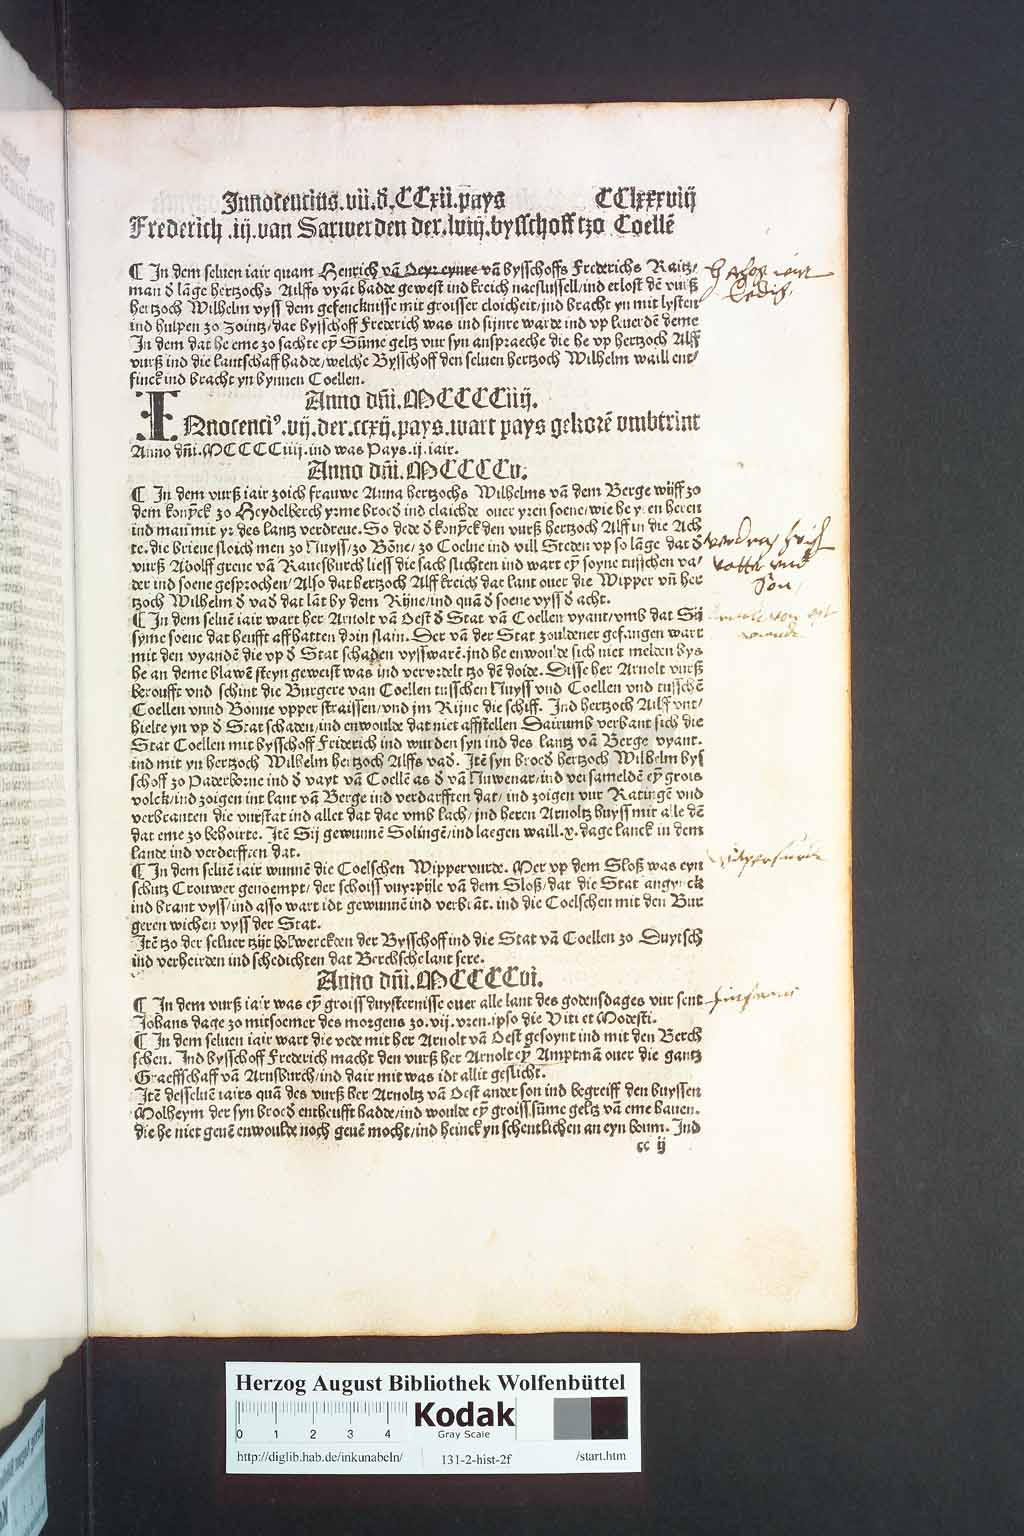 Innocencius.vii.ď.CCxii.pays CClxxxviij
Frederich .iij.van Sarwerden der.lviij.bysschoff tzo Coellē
¶ In dem seluen iair quam Henrich vā vā bysschoffs Frederichs Raitz/
man ď lāge hertzochs Ailffs vyāt hadde gewest ind kreich naeslussell/ind erlost dē vurß
hertzoch Wilhelm vyss dem gefencknisse mit groisser cloicheit/ind bracht yn mit lysten
ind hulpen zo Zointz/dae bysschoff Frederich was ind sijnre warde ind vp leuerdē deme
In dem dat he eme zo sachte eȳ Sūme geltz vur syn anspraeche die he vp hertzoch Alff
vurß ind die lantschaff hadde/welche Bysschoff den seluen hertzoch Wilhelm waill ent/
finck ind bracht yn bynnen Coellen.
Anno dn̄i.MCCCCiiij.
INnocenciꝰ.vij.der.ccxij.pays.wart pays gekorē vmbtrint
Anno dn̄i.MCCCCiiij.ind was Pays.ij.iair.
Anno dn̄i.MCCCCv.
¶ In dem vurß iair zoich frauwe Anna hertzochs Wilhelms vā dem Berge wijff zo
dem konȳck zo Heydelberch yrme broeď ind claichde ouer yren soene/wie he yren heren
ind man mit yr des lantz verdreue. So dede ď konȳck den vurß hertzoch Alff in die Ach
te. die brieue sloich men zo Nuyss/zo Bōne/zo Coelne ind vill Steden vp so lāge dat ď
vurß Adolff greue vā Rauesburch liess die sach slichten ind wart eȳ soyne tusschen va/
der ind soene gesprochen/Also dat hertzoch Alff kreich dat lant ouer die Wipper vn̄ her
tzoch Wilhelm ď vaď dat lāt by dem Rijne/ind quā ď soene vyss ď acht.
¶ In dem seluē iair wart her Arnolt vā Oest ď Stat vā Coellen vyant/vmb dat Sij
syme soene dat heufft aff hatten doin slain. Der vā der Stat zouldener gefangen wart
mit den vyandē die vp ď Stat schaden vysswarē.ind he enwoulde sich niet melden bys
he an deme blawē steyn geweist was ind verordelt tzo dē doide. Disse her Arnolt vurß
berouffte vnd schint die Burgere van Coellen tusschen Nuyss vnd Coellen vnd tusschē
Coellen vnnd Bonne vpper straissen/vnd jm Rijne die schiff. Ind hertzoch Ailff vnt/
hielte yn vp ď Stat schaden/ind enwoulde dat niet affstellen Dairumb verbant sich die
Stat Coellen mit bysschoff Friderich ind wurden syn ind des lantz vā Berge vyant.
ind mit yn hertzoch Wilhelm hertzoch Alffs vaď. Itē syn broeď hertzoch Wilhelm bys
schoff zo Paderborne ind ď vayt vā Coellē as ď vā Nuwenar/ind versameldē eȳ grois
volck/ind zoigen int lant vā Berge ind verdarfften dat/ ind zoigen vur Ratingē vnd
verbranten die vurstat ind allet dat dae vmb lach/ ind heren Arnoltz huyss mit alle dē
dat eme zo behoirte. Itē Sij gewunnē Solingē/ind laegen waill.x.dage lanck in dem
lande ind verderfften dat.
¶ In dem seluē iair wunnē die Coelschen Wippervurde. Mer vp dem Sloß was eyn
schutz Crouwer genoempt/ der schoiss vuyrpijle vā dem Sloß/dat die Stat angynck
ind brant vyss/ind asso wart idt gewunnē ind verbrāt. ind die Coelschen mit den Bur
geren wichen vyss der Stat.
Itē tzo der seluer tzijt bolwerckden der Bysschoff ind die Stat vā Coellen zo Duytsch
ind verheirden ind schedichten dat Berchsche lant sere.
Anno dn̄i.MCCCCvi.
¶ In dem vurß iair was eȳ groiss duysternisse ouer alle lant des godensdages vur sent
Johans dage zo mitsoemer des morgens zo.vij.vren.ipso die Viti et Modesti.
¶ In dem seluen iair wart die vede mit her Arnolt vā Oest gesoynt ind mit den Berch
schen. Ind bysschoff Frederich macht den vurß her Arnolt eȳ Amptmā ouer die gantz
Graeffschaff vā Arnsburch/ind dair mit was idt allit geslicht.
Itē desseluē iairs quā des vurß her Arnoltz vā Oest ander son ind begreiff den buyssen
Molheym der syn broeď entheufft hadde/ind woulde eȳ groiss.sūme geltz vā eme hauen.
die he niet geuē enwoulde noch geuē mocht/ind heinck yn schentlichen an eyn boum. Ind
cc ij
Herzog August Bibliothek Wolfenbüttel
0 1 2 3 4
Kodak
Gray Scale
http://diglib.hab.de/inkunabeln/ 131-2-hist-2f /start.htm